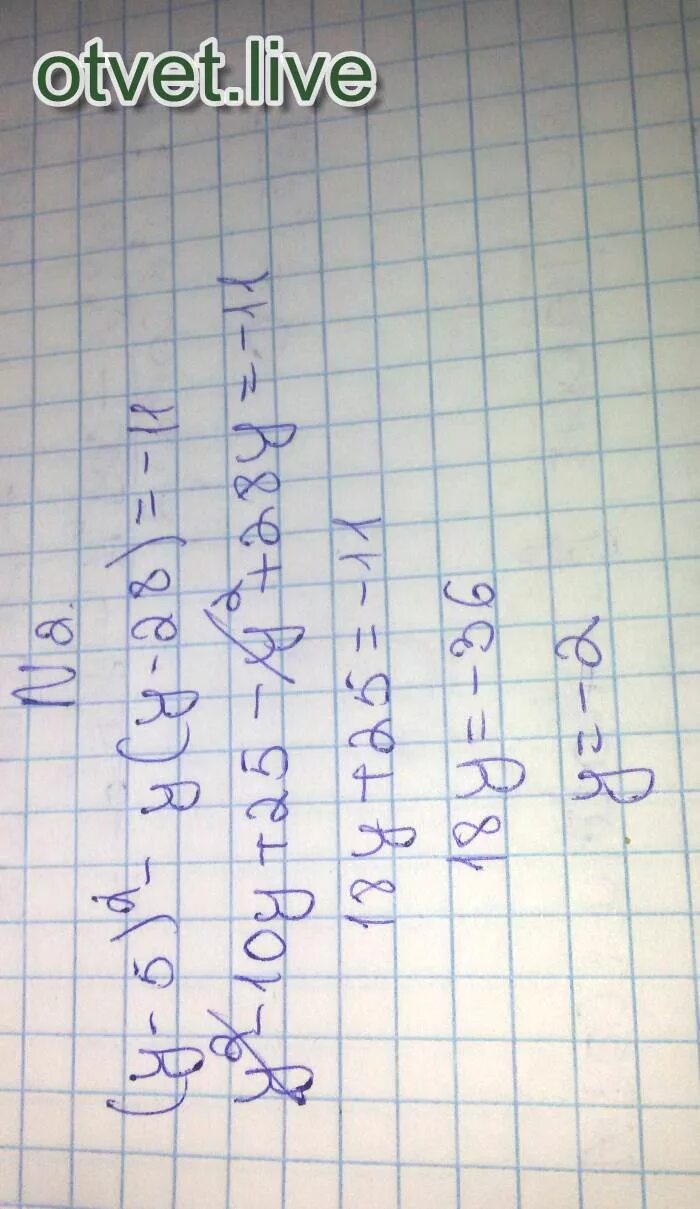 otvet.live
N 2.
(y-5)²- y(y-28)=-11
y²-10y+25-y²+28y=-11
18y+25=-11
18y=-36
y=-2